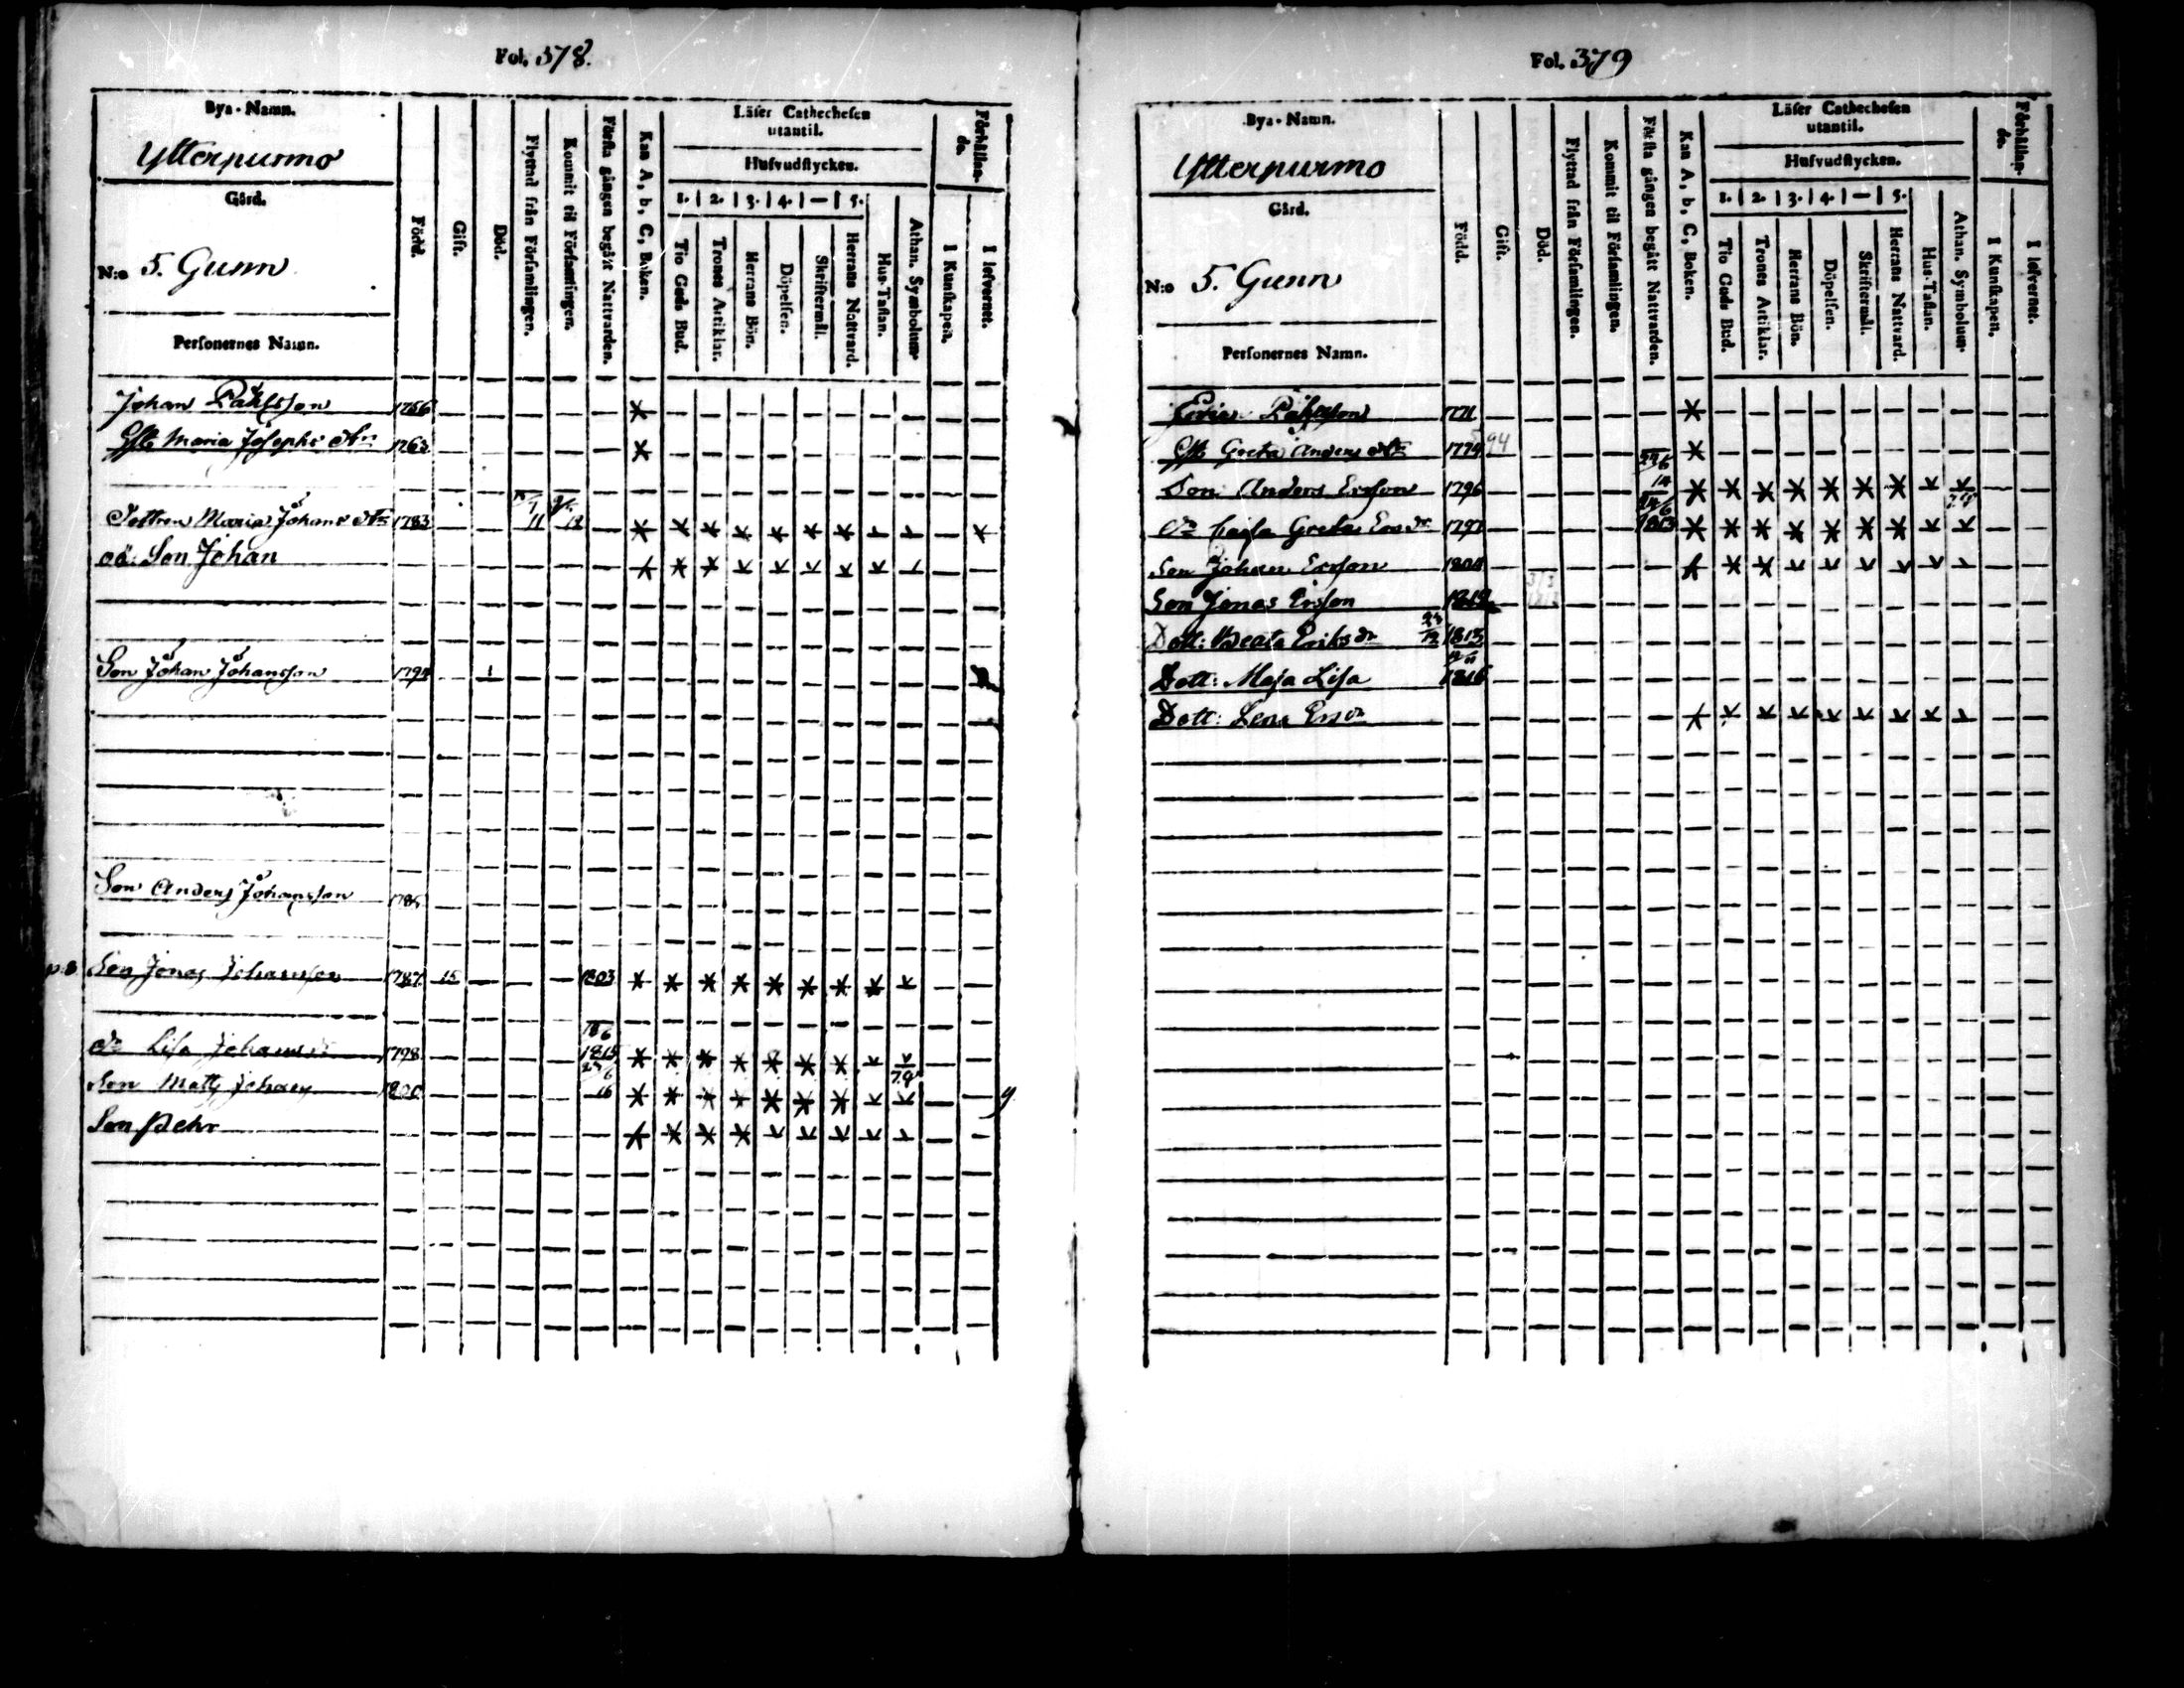 Fol. 378.
Bya-Namn.
Ytterpurmo
Gård.
N:o 5. Gunn
Personernes Namn.
Född.
Gift.
Död.
Flyttad från Församlingen.
Kommit til Församlingen.
Första gången begått Nattvarden.
Kan A, b, C, Boken.
Läser Cathechesen
utantil.
Hufvudstycken.
1. 2. 3. 4. — 5.
Tio Guds Bud.
Trones Artiklar.
Herrans Bön.
Döpelsen.
Skriftermål.
Herrans Nattvard.
Hus-Taflan.
Athan. Symbolum.
Förhållan-
de.
I Kunskapen.
I lefvernet.
Johan Påhlsson 1756
Maria Josephs dtr 1763
Maria Johans dtr 1783 11 12
oä. Son Johan
Son Johan Johansson
Son Anders Johansson
Son Jonas Johansson 1787 15 1803
18/6
dr Lisa 1798 1815
Son Matts 16 7.8
Son Pehr
Fol. 379
Bya-Namn.
Ytterpurmo
Gård.
N:o 5. Gunn
Personernes Namn.
Född.
Gift.
Död.
Flyttad från Församlingen.
Kommit til Församlingen.
Första gången begått Nattvarden.
Kan A, b, C, Boken.
Läser Cathechesen
utantil.
Hufvudstycken.
1. 2. 3. 4. — 5.
Tio Guds Bud.
Trones Artiklar.
Herrans Bön.
Döpelsen.
Skriftermål.
Herrans Nattvard.
Hus-Taflan.
Athan. Symbolum.
Förhållan-
de.
I Kunskapen.
I lefvernet.
Påhlsson 1771
Greta Anders dtr 94
Son Anders Ersson 1796 14
dr Cajsa Greta Ersdr 1797 1813
Son Johan Ersson
Son Jonas Ersson
Dott: Beata Eriksdr 23/12 1813
Dott: Maja Lisa 1816
Dott: Lena Ersdr